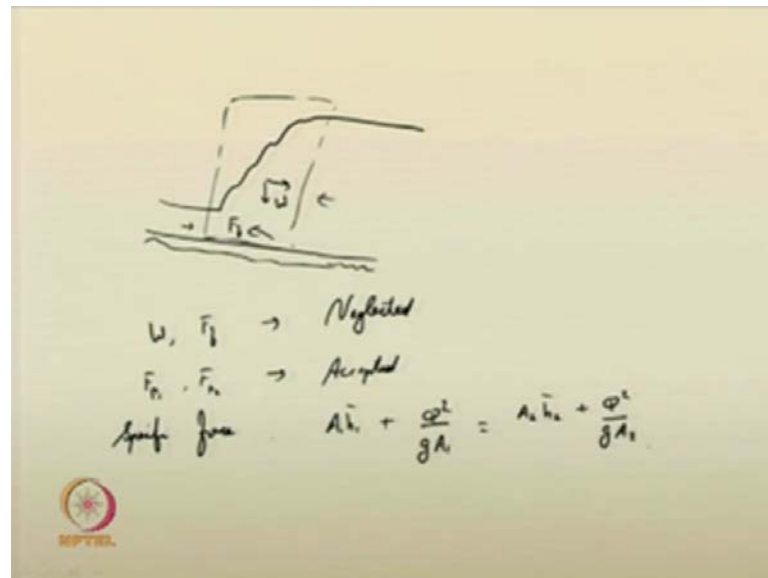 W
F_f
W, F_f → Neglected
F_P₁, F_P₂ → Accepted
Specific force A₁h̄₁ + Q²/gA₁ = A₂h̄₂ + Q²/gA₂
NPTEL